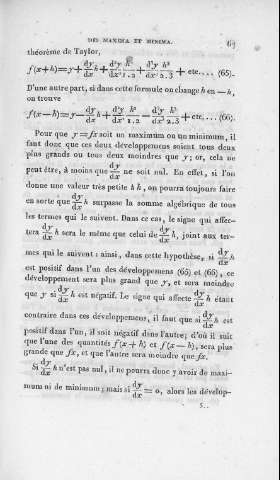 DES MAXIMA ET MINIMA. 67
théorème de Taylor,
f(x+h)=y+dy/dx h+d²y/dx² h²/1.2+d³y/dx³ h³/2.3+etc.... (65).
D'une autre part, si dans cette formule on change h en —h,
on trouve
f(x—h)=y—dy/dx h+d²y/dx² h²/1.2—d³y/dx³ h³/2.3+etc.... (66).
Pour que y=fx soit un maximum ou un minimum, il
faut donc que ces deux développemens soient tous deux
plus grands ou tous deux moindres que y; or, cela ne
peut être, à moins que dy/dx ne soit nul. En effet, si l'on
donne une valeur très petite à h, on pourra toujours faire
en sorte que dy/dx h surpasse la somme algébrique de tous
les termes qui le suivent. Dans ce cas, le signe qui affec-
tera dy/dx h sera le même que celui de dy/dx h, joint aux ter-
mes qui le suivent: ainsi, dans cette hypothèse, si dy/dx h
est positif dans l'un des développemens (65) et (66), ce
développement sera plus grand que y, et sera moindre
que y si dy/dx h est négatif. Le signe qui affecte dy/dx h étant
contraire dans ces développemens, il faut que si dy/dx h est
positif dans l'un, il soit négatif dans l'autre; d'où il suit
que l'une des quantités f(x+h) et f(x—h), sera plus
grande que fx, et que l'autre sera moindre que fx.
Si dy/dx h n'est pas nul, il ne pourra donc y avoir de maxi-
mum ni de minimum; mais si dy/dx = 0, alors les dévelop-
5..